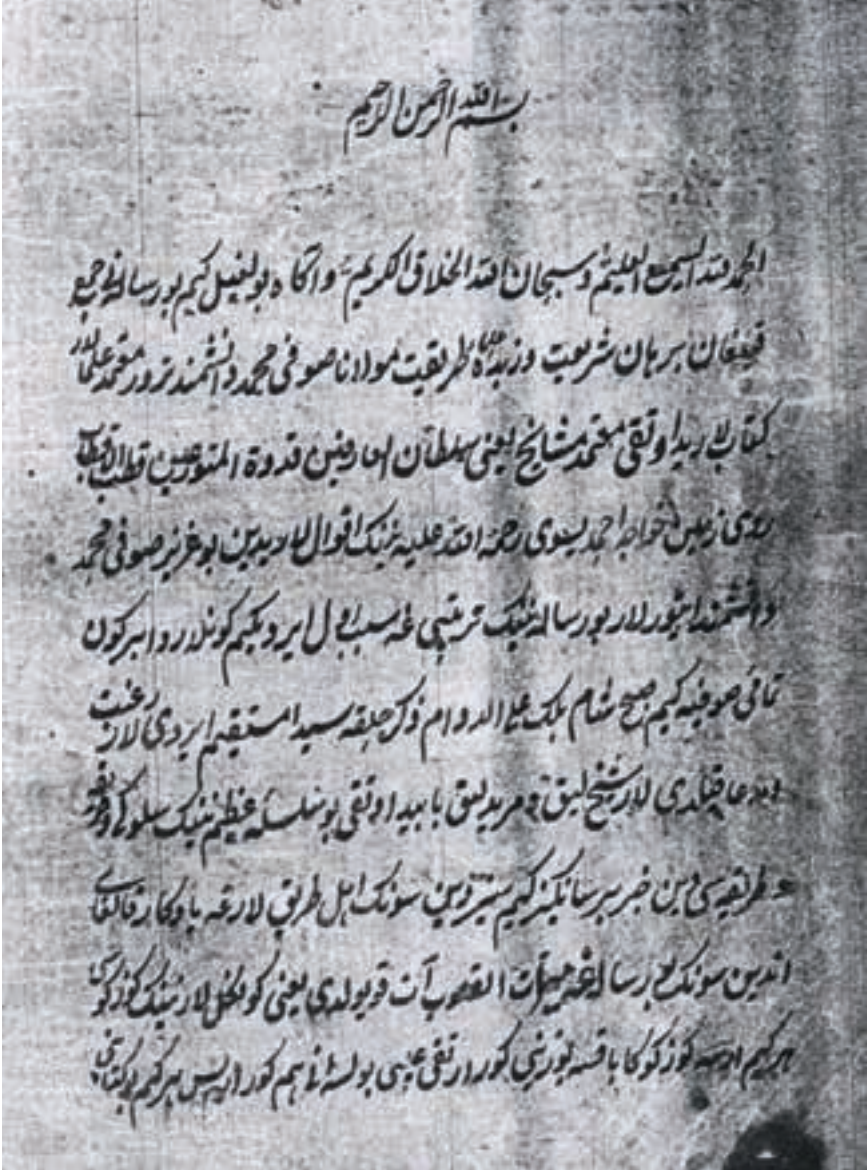 بسم الله الرحمن الرحيم
الحمد لله السميع العليم و سبحان الله الخلاق الكريم و اكاه بولغيل كيم بو رساله نى جمع
قيلغان برهان شريعت و زبدهٔ طريقت مولانا صوفى محمد دانشمند ترور معتمد علمالار
كتابلاريدا و تقى معتمد مشايخ يعنى سلطان العارفين قدوة المتورعين قطب الاقطاب
روى زمين خواجه احمد يسوى رحمة الله عليه ننك اقواللاريدين بو عزيز صوفى محمد
دانشمند ايتورلار بو رساله ننك ترتيبى غه سبب اول ايرديكيم كونلاردا بر كون
صوفيه كيم صبح شام بلكه على الدوام ذكر حلقه سيدا مستقيم ايردى لار رغبت
قيلدى لار شيخ ليق و مريدليق بابيدا و تقى بو سلسلهٔ عظيم ننك سلوكى
و طريقه سى دين خبر برسانكيز كيم سيزدين سونك اهل طريق لارغه يادكار قالغاى
اندين سونك بو رساله غه مرآت القلوب آت قويولدى يعنى كونكل لارننك كوزكوسى
هر كيم اوشبو كوزكوكا باقسه يوزينى كورار تقى عيبى بولسه انى هم كورار پس هر كيم بو كتابنى